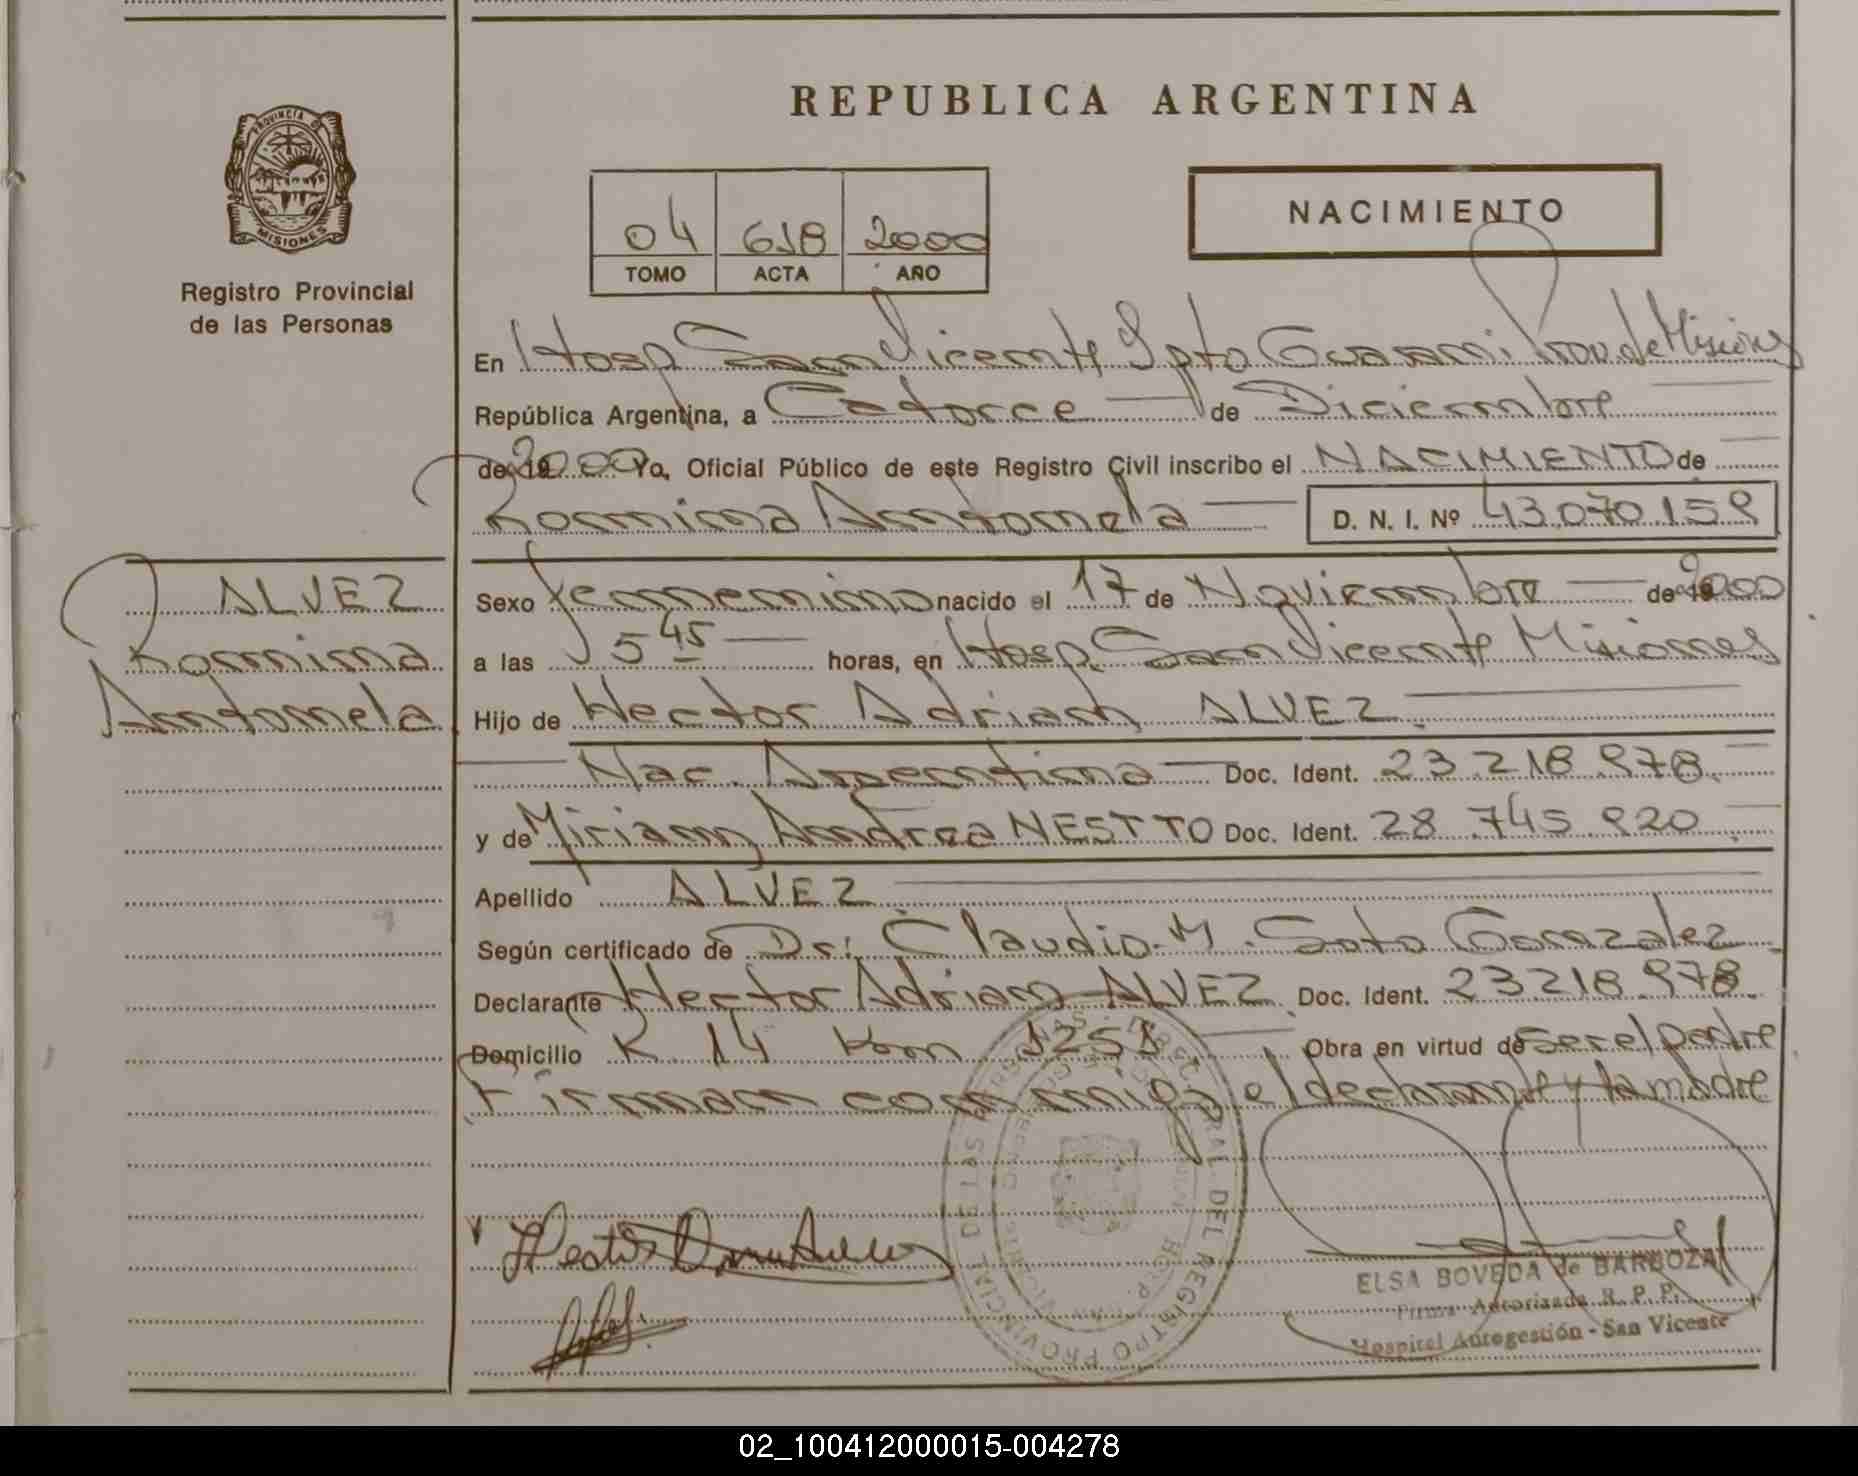 REPUBLICA ARGENTINA
PROVINCIA DE
MISIONES
Registro Provincial
de las Personas
04 618 2000
TOMO ACTA AÑO
NACIMIENTO
En Hosp San Vicente Dpto Guarani Prov de Misiones
República Argentina, a Catorce de Diciembre
de 2000 Yo, Oficial Público de este Registro Civil inscribo el NACIMIENTO de
Romina Antonela D. N. I. Nº 43.070.159
ALVEZ
Romina
Antonela
Sexo femenino nacido el 17 de Noviembre de 2000
a las 5 45 horas, en Hosp. San Vicente Misiones
Hijo de Hector Adrian ALVEZ
Nac. Argentina Doc. Ident. 23 218 978
y de Miriam Andrea NESTTO Doc. Ident. 28 745 920
Apellido ALVEZ
Según certificado de Dr: Claudio M. Soto Gomzalez
Declarante Hector Adrian ALVEZ Doc. Ident. 23218 978
Domicilio R 14 Km 1251 Obra en virtud de ser el padre
Firman conmigo el declarante y la madre
ELSA BOVEDA de BARBOZA
Firma Autorizada R. P. P.
Hospital Autogestión - San Vicente
02_100412000015-004278